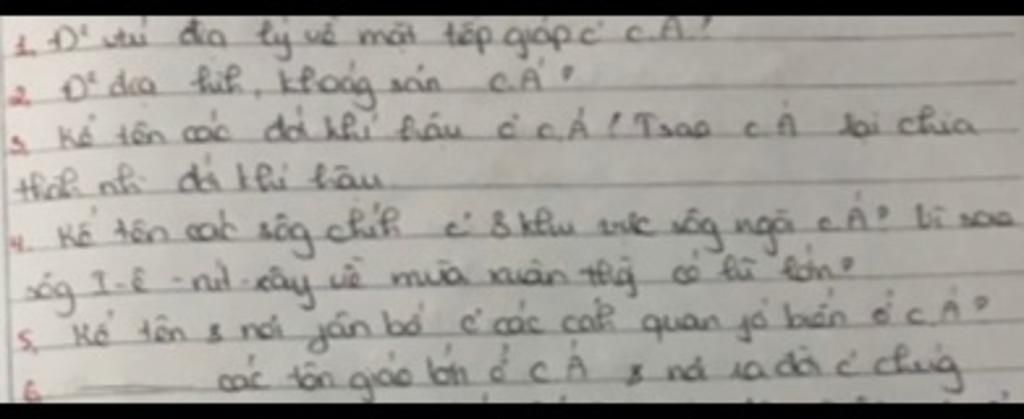 1. Đ² vtrí địa lý và mặt tiếp giáp c² c.Á?
2. Đ² địa hìh, khoág sản c.Á?
3. Kể tên các đới khí hậu ở c.Á? Tsao c.Á lại chia
thàh nh` đới khí hậu
4. Kể tên các sôg chíh c² 3 khu vực sôg ngòi c.Á? Vì sao
sôg I-ê-nit-xây về mùa xuân thg có lũ lớn?
5. Kể tên & nơi phân bố c² các cảh quan phổ biến ở c.Á?
6. các tôn giáo lớn ở c.Á & nơi ra đời c² chúg